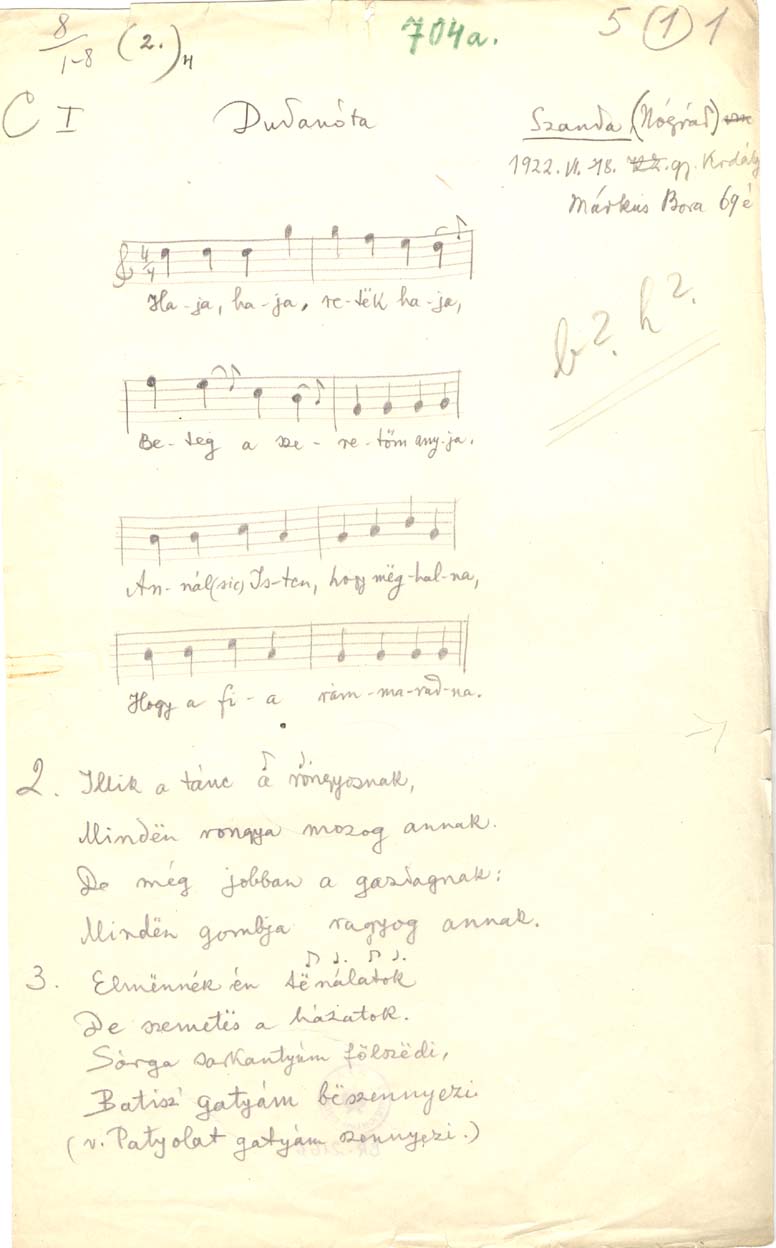 8/1-8 (2.)4 704a. 5 (1) 1
C I Dudanóta Szanda (Nógrád)
1922. VI. 18. gy. Király
Márkus Bora 69 é
4/4
Ha-ja, ha-ja, re-tëk ha-ja,
b? h?
Be-teg a sze-re-töm any-ja.
An-nál (sic) Is-ten, hogy mëg-hal-na,
Hogy a fi-a rám-ma-rad-na.
2. Illik a tánc a röngyosnak,
Mindën rongya mozog annak.
De még jobban a gazdagnak:
Mindën gombja ragyog annak.
3. Elmënnék én tënálatok
De szemetës a házatok.
Sárga sarkantyúm fölszëdi,
Batisz gatyám bëszennyezi
(v. Patyolat gatyám szennyezi.)